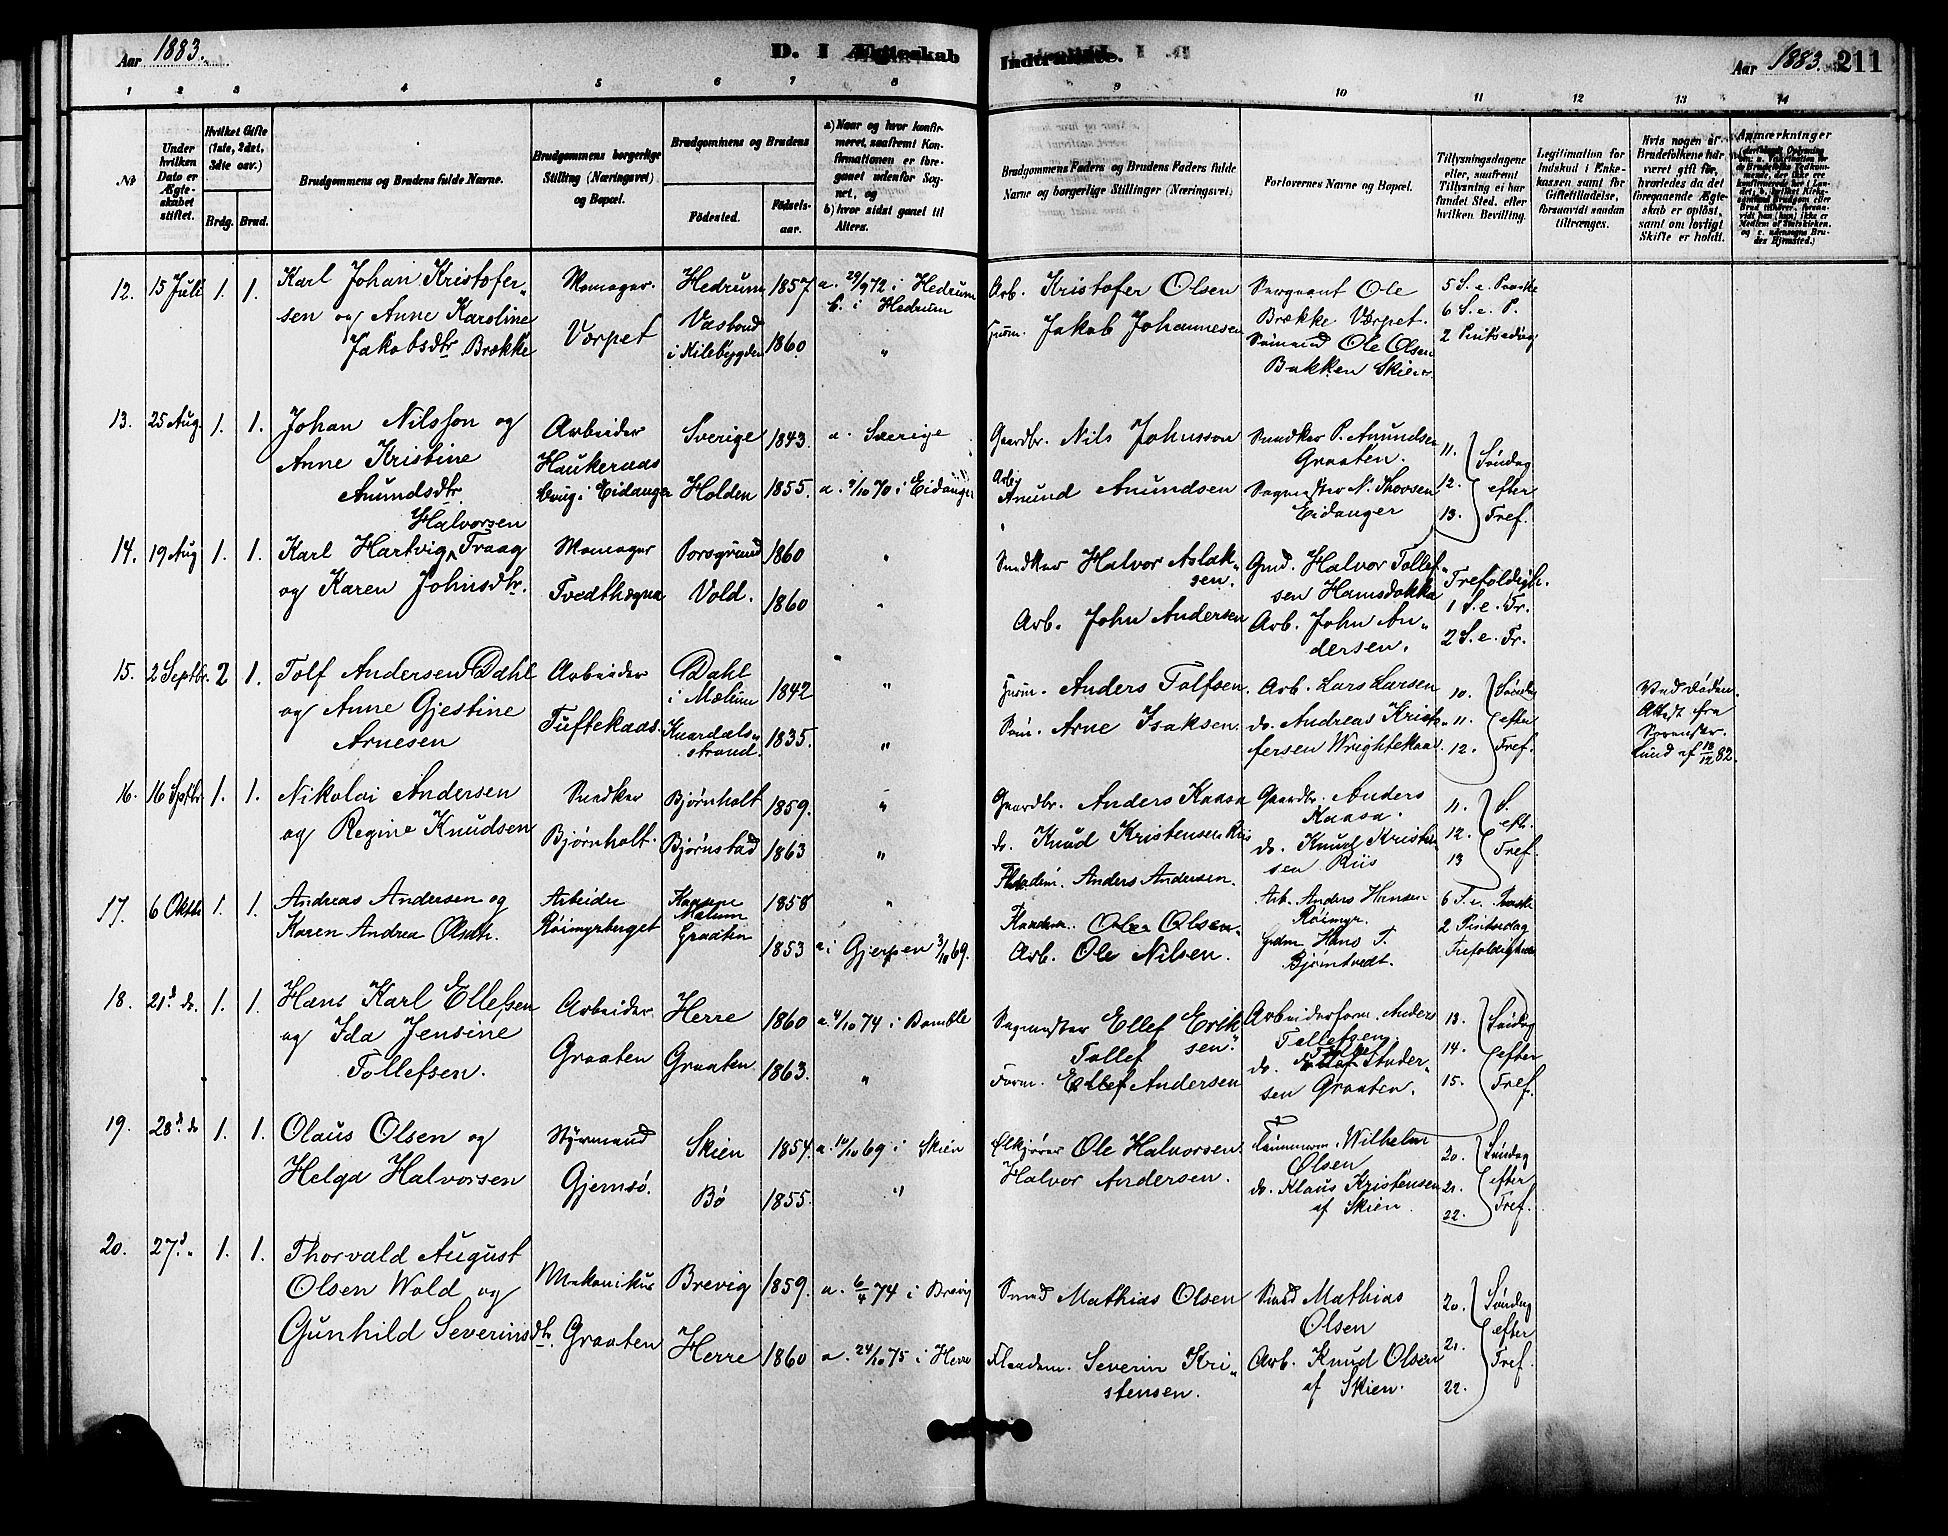 Aar 1883.
D. I Ægteskab
Indtraadte.
Aar 1883. 211
1 2 3 4 5 6 7 8 9 10 11 12 13 14
№
Under hvilken Dato er Ægteskabet stiftet.
Hvilket Gifte (1ste, 2det, 3die osv.)
Brdg. Brud.
Brudgommens og Brudens fulde Navne.
Brudgommens borgerlige Stilling (Næringsvei) og Bopæl.
Brudgommens og Brudens
Födested. Födselsaar.
a) Naar og hvor konfirmeret, saafremt Konfirmationen er foregaaet udenfor Sognet, og
b) hvor sidst gaaet til Alters.
Brudgommens Faders og Brudens Faders fulde Navne og borgerlige Stillinger (Næringsvei)
Forlovernes Navne og Bopæl.
Tillysningsdagene eller, saafremt Tillysning ei har fundet Sted, efter hvilken Bevilling.
Legitimation for Indskud i Enkekassen samt for Giftetilladelse, forsaavidt saadan tiltrænges.
Hvis nogen af Brudefolkene har været gift før, hvorledes da det foregaaende Ægteskab er oplöst, samt om lovligt Skifte er holdt.
Anmærkninger
12. 15 Juli 1. 1. Karl Johan Kristofer-
sen og Anne Karoline
Jakobsdtr Brække
Værpet
Hedrum 1857
i Kilebygden 1860
a. 29/9 72 i Hedrum
b. i Hedrum
"
Arb. Kristofer Olsen
Jakob Johannesen
Sergeant Ole
Brække Værpet.
Sömand Ole Olsen
Bakken Skien.
5 S. e. Paaske
6 S. e. P.
2 Pintsedag
13. 25 Aug. 1. 1. Johan Nilsson og
Anne Kristine
Anundsdtr.
Arbeider
Sverige 1843.
Holden 1855.
a. Sverige
i Eidanger
Gaardbr. Nils Johnsson
Arb.
Anund Anundsen
Snedker P. Anundsen
Graaten.
Sagmester N. Thorsen
Eidanger
11.
12.
13.
Söndag
efter
Tref.
14. 19 Aug 1. 1. Halvorsen
Karl Hartvig Traag
og Karen Johnsdtr.
Porsgrund 1860
Vold. 1860
"
"
Snedker Halvor Aslak-
sen.
Arb. John Andersen
Gmd. Halvor Tollef-
sen
Arb. John An-
dersen.
Trefoldigh.
1 S. e. Tr.
2 S. e. Tr.
15. 2 Septbr. 2 1. Tolf Andersen Dahl
og Anne Gjestine
Arnesen
Arbeider
Tuftekaas.
Dahl
i Mælum 1842
Knardals-
strand. 1835.
"
"
Anders Tolfsen.
Arne Isaksen.
Arb. Lars Larsen
do. Andreas Krist-
fersen
10.
11.
12.
Söndag
efter
Tref.
Ved Döden.
Attest fra
16. 16 Sptbr. 1. 1. Nikolai Andersen
og Regine Knudsen
Snedker
Bjørnholt.
Bjørnholt 1859.
Bjørnstad 1863
"
"
Gaardbr. Anders Kaasa
do. Knud Kristensen Riis
Gaardbr. Anders
Kaasa.
do. Knud Kristen-
sen Riis
11.
12.
13
S.
eft.
Tref.
17. 6 Oktbr 1. 1. Andreas Andersen og
Karen Andrea Olsdtr.
Arbeider
Røimyrberget
Mælum 1858
Graaten 1853
"
a. i Gjerpen 3/10 69.
Anders Andersen.
Olsen.
Arb. Ole Nilsen.
Arb. Anders Hansen
Røimyr.
Hans T.
Bjørntvedt.
6 S. e. Paaske
2 Pintsedag
18. 21d do. 1. 1. Hans Karl Ellefsen
og Ida Jensine
Tollefsen.
Arbeider
Graaten
Herre 1860
Graaten. 1863.
a. 4/10 74 i Bamble
"
Sagmester Ellef Erik-
sen.
Tollef
Form. Ellef Andersen
Arbeiderform. Anders
Tollefsen.
sen Graaten.
13.
14.
15.
Söndag
efter
Tref.
19. 28d do 1. 1. Olaus Olsen og
Helga Halvorsen
Styrmand
Gjemsö.
Skien 1854.
Bö 1855.
a. 10/10 69 i Skien
"
Ølkjører Ole Halvorsen.
Halvor Andersen.
Wilhelm
Olsen
do. Klaus Kristensen
af Skien.
20.
21.
22.
Söndag
efter
Tref.
20. 27d " 1. 1. Thorvald August
Olsen Wold og
Gunhild Severinsdtr.
Mekanikus
Graaten
Brevig 1859.
Herre 1860
a. 6/4 74 i Brevig
a. 24/10 75 i Herre
Smed Mathias Olsen
Flaadem. Severin Kri-
stensen.
Smed Mathias
Olsen
Arb. Knud Olsen
af Skien.
20.
21.
22.
Söndag
efter
Tref.